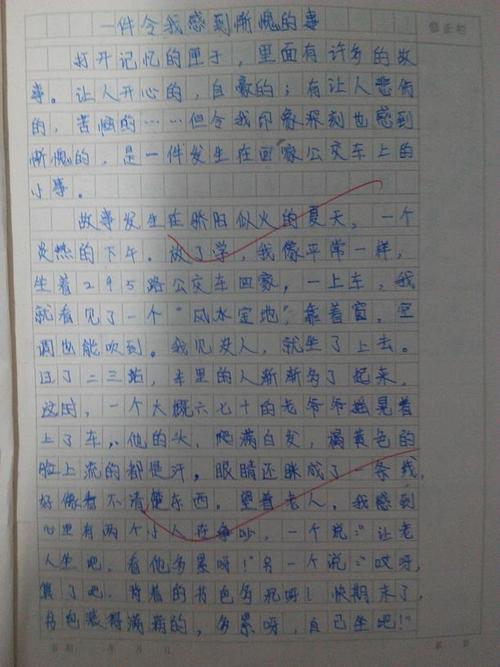 一件令我感到惭愧的事
修正栏
打开记忆的匣子，里面有许多的故
事。让人开心的，自豪的；有让人悲伤
的，苦恼的……但令我印象深刻也感到
惭愧的，是一件发生在回家公交车上的
小事。
故事发生在骄阳似火的夏天，一个
炎热的下午。放了学，我像平常一样，
坐着295路公交车回家，一上车，我
就看见了一个“风水宝地”，靠着窗，空
调也能吹到。我见没人，就坐了上去。
过了二三站，车里的人渐渐多了起来，
这时，一个大概六七十的老爷爷摇晃着
上了车，他的头，爬满白发，橘黄色的
脸上流的都是汗，眼睛还眯成了一条线，
好像看不清楚东西。望着老人，我感到
心里有两个小人在，一个说：“让老
人坐吧，看他多累呀！”另一个说：“哎呀，
算了吧，背着的书包多沉呀！快期末了，
书包装得满满的，多累呀，自己坐吧！”